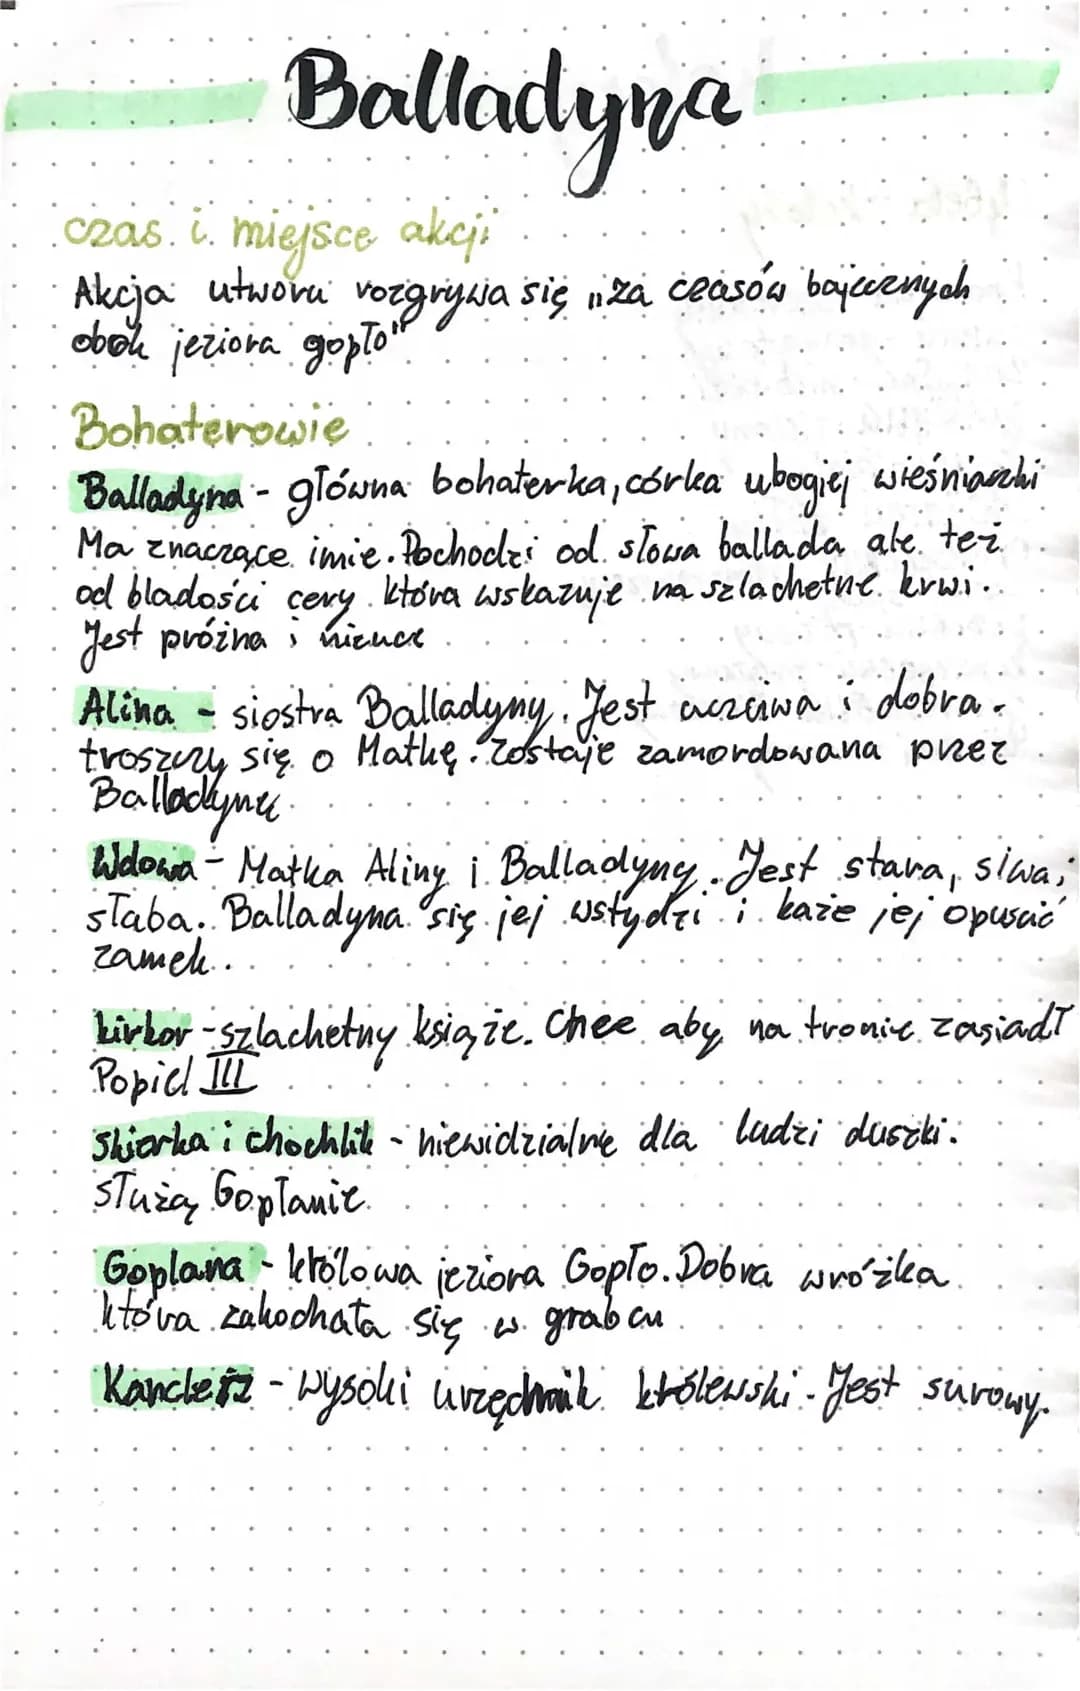 Balladyna
czas i miejsce akcji
Akcja utworu rozgrywa się „za czasów bajecznych
obok jeziora gopło"
Bohaterowie
Balladyna - główna bohaterka, córka ubogiej wieśniaczki
Ma znaczące imie. Pochodzi od słowa ballada ale też
od bladości cery która wskazuje na szlachetne krwi.
Jest próżna i
Alina - siostra Balladyny. Jest uczciwa i dobra.
troszczy się o Matkę. Zostaje zamordowana przez
Balladynę
Wdowa - Matka Aliny i Balladyny. Jest stara, siwa i
słaba. Balladyna się jej wstydzi i każe jej opuścić
zamek.
kirkor - szlachetny książe. Chce aby na tronie zasiadł
Popiel III
Skierka i chochlik - niewidzialne dla ludzi duszki.
służą Goplanie.
Goplana - królowa jeziora Gopło. Dobra wróżka
która zakochała się w grabcu
Kanclerz - wysoki urzędnik królewski. Jest surowy.